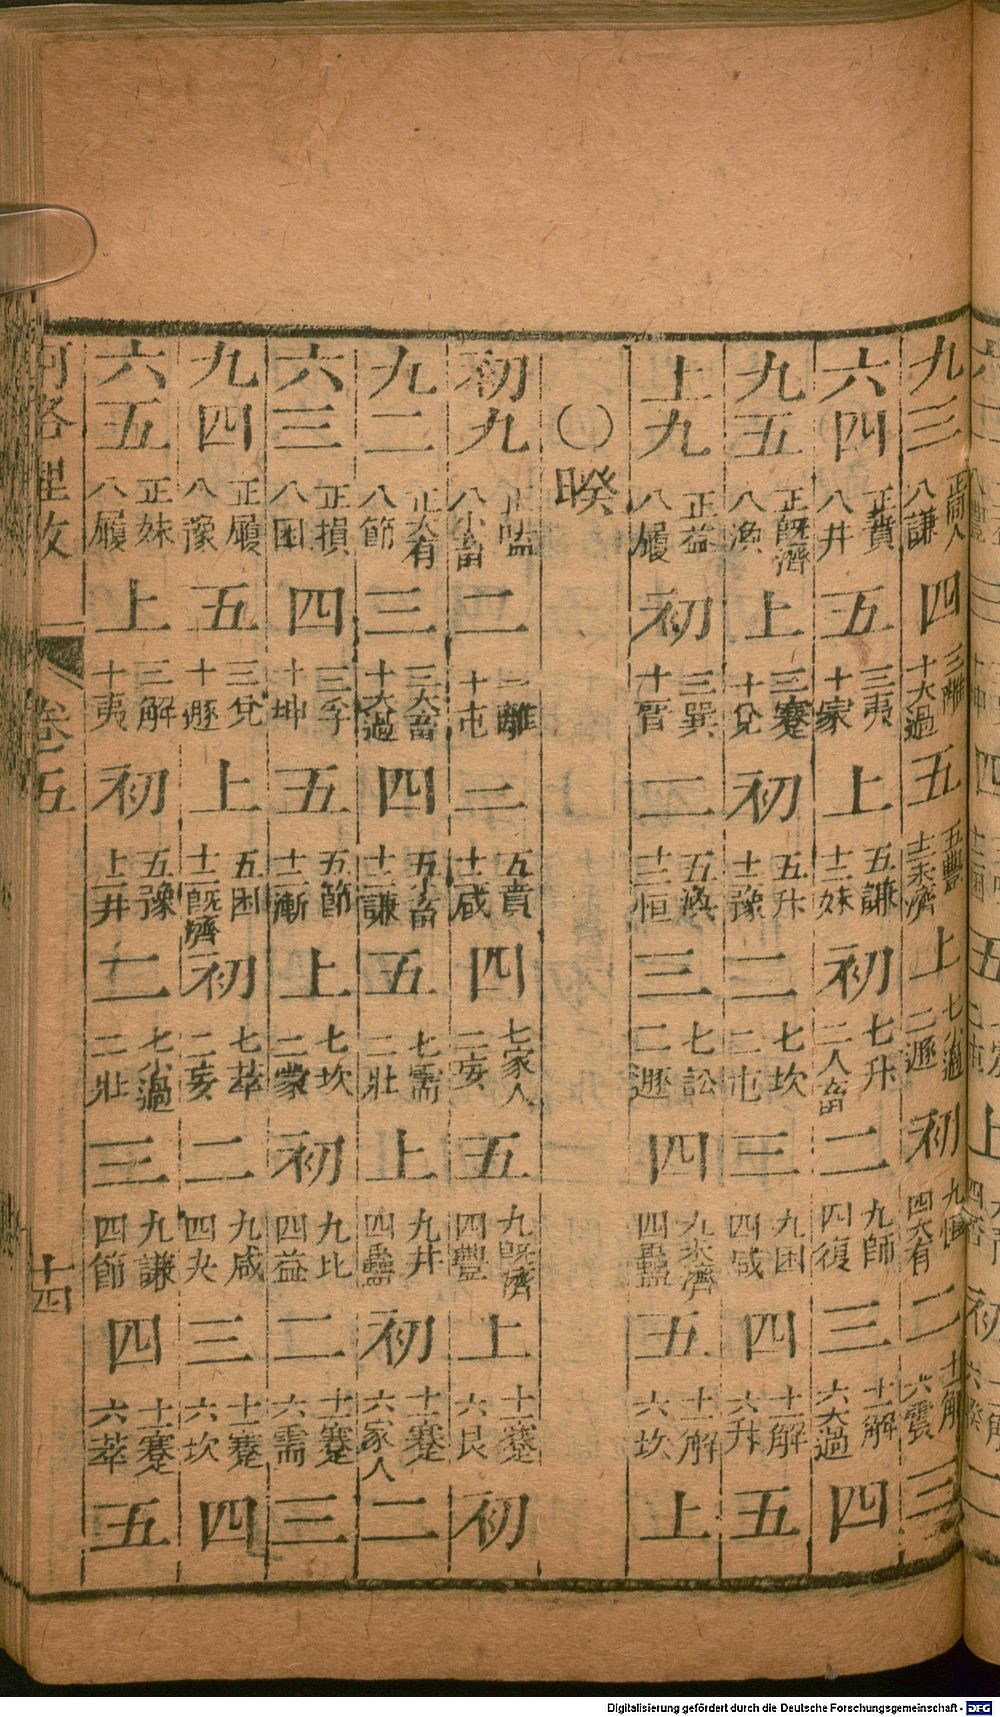 九三 正同人 八謙 四 三離 十大過 五 五豐 十二未濟 上 七過 二遯 初 九恒 四大有 二 十一解 六需 三
六四 正賁 八井 五 三夷 十家 上 五謙 十二妹 初 七升 二人畜 二 九師 四復 三 十一解 六大過 四
九五 正旣濟 八渙 上 三蹇 十兌 初 五升 十二豫 二 七坎 二屯 三 九困 四咸 四 十一解 六升 五
上九 正益 八履 初 三巽 十晉 二 五渙 十二恒 三 七訟 二遯 四 九未濟 四蠱 五 十一解 六坎 上
〇睽
初九 正嗑 八小畜 二 三離 十屯 三 五賁 十二咸 四 七家人 二妄 五 九旣濟 四豐 上 十一蹇 六艮 初
九二 正大有 八節 三 三大畜 十大過 四 五小畜 十二謙 五 七需 二壯 上 九井 四蠱 初 十一蹇 六家人 二
六三 正損 八困 四 三孚 十坤 五 五節 十二漸 上 七坎 二蒙 初 九比 四益 二 十一蹇 六需 三
九四 正履 八豫 五 三兌 十遯 上 五困 十二旣濟 初 七萃 二妄 二 九咸 四夬 三 十一蹇 六坎 四
六五 正妹 八履 上 三解 十夷 初 五豫 十二井 二 七小過 二壯 三 九謙 四節 四 十一蹇 六萃 五
河洛理攷 卷五 十四
Digitalisierung gefördert durch die Deutsche Forschungsgemeinschaft - DFG